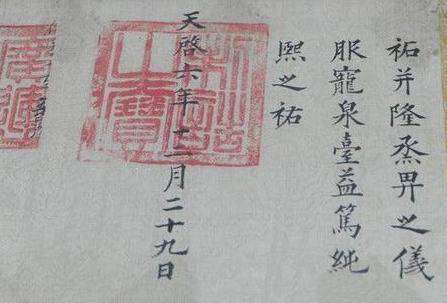 祐并隆烝畀之儀
服寵泉臺益篤純
熙之祐
天啓六年十一月二十九日